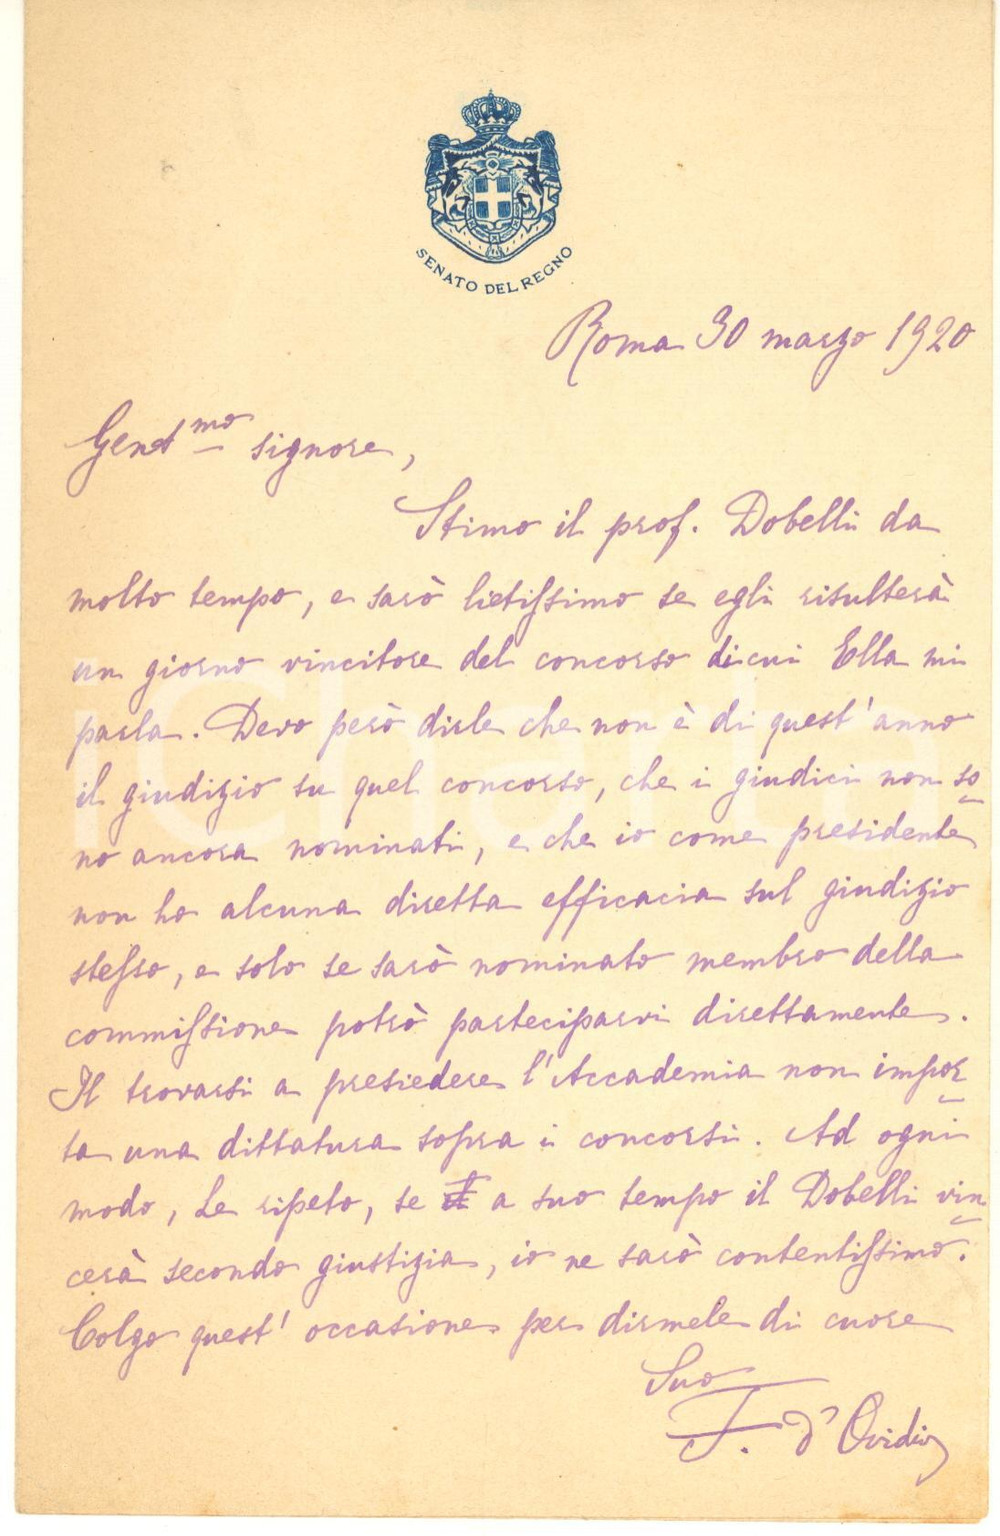 SENATO DEL REGNO
Roma 30 marzo 1920
Gent.mo signore,
Stimo il prof. Dobelli da
molto tempo, e sarò lietissimo se egli risulterà
un giorno vincitore del concorso di cui Ella mi
parla. Devo però dirle che non è di quest'anno
il giudizio su quel concorso, che i giudici non so
no ancora nominati, e che io come presidente
non ho alcuna diretta efficacia sul giudizio
stesso, e solo se sarò nominato membro della
commissione potrò parteciparvi direttamente.
Il trovarsi a presiedere l'Accademia non impor
ta una dittatura sopra i concorsi. Ad ogni
modo, Le ripeto, se a suo tempo il Dobelli vin
cerà secondo giustizia, io ne sarò contentissimo.
Colgo quest'occasione per dirmele di cuore
Suo
F. d'Ovidio